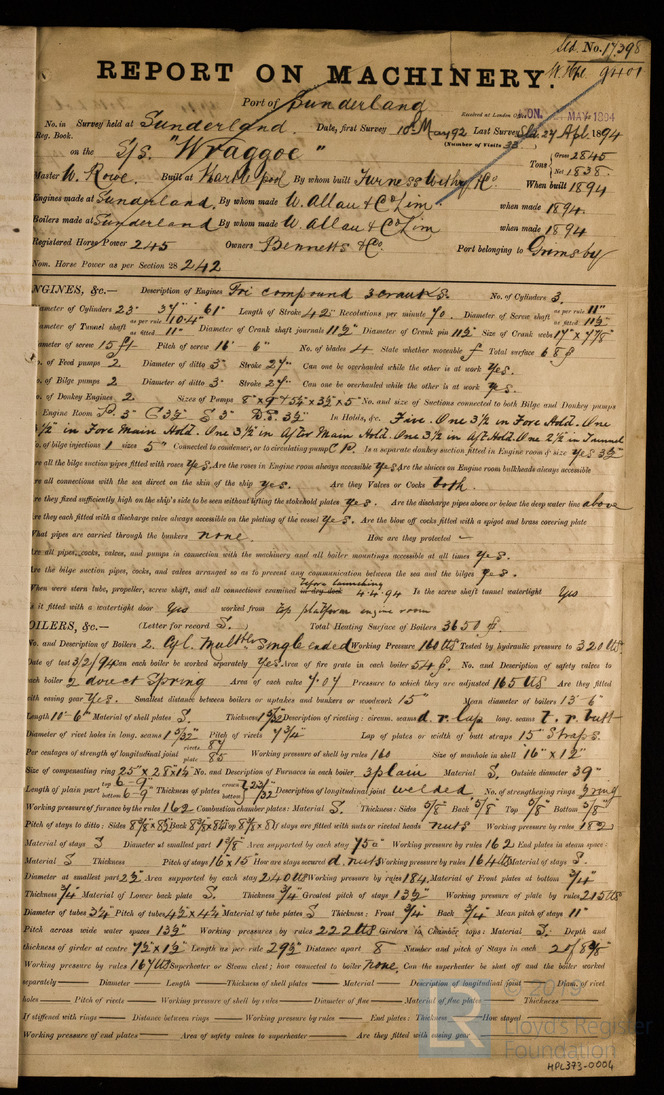 Sld. No. 17,398
REPORT ON MACHINERY.
W. Hpl. 9401
Port of Sunderland
Received at London Office
MAY 1894
No. in Survey held at Sunderland. Date, first Survey 10th May 92 Last Survey Sld. 27 Apl. 1894
Reg. Book.
(Number of Visits 33)
on the S/S. "Wraggoe"
Tons Gross 2845
Net 1838
Master W. Rowe. Built at Hartlepool By whom built Furness Withy & Co. When built 1894
Engines made at Sunderland. By whom made W. Allan & Co Lim. when made 1894.
Boilers made at Sunderland By whom made W. Allan & Co Lim when made 1894
Registered Horse Power 245 Owners Bennetts & Co. Port belonging to Grimsby
Nom. Horse Power as per Section 28 242
NGINES, &c.— Description of Engines Tri compound 3 cranks. No. of Cylinders 3.
ameter of Cylinders 23" 37" 61" Length of Stroke 42" Revolutions per minute 70. Diameter of Screw shaft as per rule 11" as fitted 11½"
ameter of Tunnel shaft as per rule 10.4" as fitted 11" Diameter of Crank shaft journals 11½" Diameter of Crank pin 11½" Size of Crank webs 17" x 7⅞"
ameter of screw 15 ft Pitch of screw 16'-6" No. of blades 4 State whether moveable Total surface 68
o. of Feed pumps 2 Diameter of ditto 3" Stroke 27" Can one be overhauled while the other is at work yes.
o. of Bilge pumps 2 Diameter of ditto 3" Stroke 27" Can one be overhauled while the other is at work yes.
o. of Donkey Engines 2 Sizes of Pumps No. and size of Suctions connected to both Bilge and Donkey pumps
Engine Room In Holds, &c. Five. One 3½ in Fore Hold. One
3½" in Fore Main Hold. One 3½ in After Main Hold. One 3½ in Aft Hold. One 2½ in Tunnel
o. of bilge injections 1 sizes 5" Connected to condenser, or to circulating pump C.P. Is a separate donkey suction fitted in Engine room & size yes 3½"
re all the bilge suction pipes fitted with roses yes. Are the roses in Engine room always accessible yes Are the sluices on Engine room bulkheads always accessible
re all connections with the sea direct on the skin of the ship yes. Are they Valves or Cocks both.
re they fixed sufficiently high on the ship's side to be seen without lifting the stokehold plates yes. Are the discharge pipes above or below the deep water line above
re they each fitted with a discharge valve always accessible on the plating of the vessel yes. Are the blow off cocks fitted with a spigot and brass covering plate
What pipes are carried through the bunkers none. How are they protected –
re all pipes, cocks, valves, and pumps in connection with the machinery and all boiler mountings accessible at all times yes.
re the bilge suction pipes, cocks, and valves arranged so as to prevent any communication between the sea and the bilges yes.
before launching
When were stern tube, propeller, screw shaft, and all connections examined in dry dock 4.4.94 Is the screw shaft tunnel watertight Yes
s it fitted with a watertight door Yes worked from top platform engine room
OILERS, &c.— (Letter for record S.) Total Heating Surface of Boilers 3650
No. and Description of Boilers 2. Cyl. Multr. Single ended Working Pressure 160 lbs Tested by hydraulic pressure to 320 lbs.
Date of test 3/2/94 Can each boiler be worked separately yes Area of fire grate in each boiler 54 No. and Description of safety valves to
each boiler 2 direct Spring Area of each valve 7.07 Pressure to which they are adjusted 165 lbs Are they fitted
with easing gear yes. Smallest distance between boilers or uptakes and bunkers or woodwork 15" Mean diameter of boilers 13'-6"
Length 10'-6" Material of shell plates S. Thickness 1 5/32 Description of riveting: circum. seams d.r. lap long. seams t.r. butt
Diameter of rivet holes in long. seams 1 5/32" Pitch of rivets 7¾" Lap of plates or width of butt straps 15" Straps.
Per centages of strength of longitudinal joint rivets 87 plate 85 Working pressure of shell by rules 160 Size of manhole in shell 16" x 12"
Size of compensating ring 25" x 28 x 1½" No. and Description of Furnaces in each boiler 3 plain Material S. Outside diameter 39"
Length of plain part top 6-9" bottom 6-9" Thickness of plates crown bottom 23/32" Description of longitudinal joint welded No. of strengthening rings
Working pressure of furnace by the rules 162 Combustion chamber plates: Material S. Thickness: Sides 5/8" Back 5/8" Top 5/8" Bottom 5/8"
Pitch of stays to ditto: Sides Back Top If stays are fitted with nuts or riveted heads nuts Working pressure by rules 182
Material of stays S Diameter at smallest part 1⅜" Area supported by each stay 750" Working pressure by rules 162 End plates in steam space:
Material S Thickness Pitch of stays 16 x 15 How are stays secured d. nuts Working pressure by rules 164 lbs Material of stays S.
Diameter at smallest part 2½" Area supported by each stay 240 Working pressure by rules 184. Material of Front plates at bottom
Thickness ¾" Material of Lower back plate S. Thickness ¾" Greatest pitch of stays 13½" Working pressure of plate by rules 215 lbs
Diameter of tubes 3¼ Pitch of tubes 4½ x 4½ Material of tube plates S Thickness: Front ¾" Back ¾" Mean pitch of stays 11"
Pitch across wide water spaces 13½" Working pressures by rules 222 lbs Girders to Chamber tops: Material S. Depth and
thickness of girder at centre 7½ x 1½" Length as per rule 29½" Distance apart 8 Number and pitch of Stays in each 2 of 8⅜
Working pressure by rules 167 lbs Superheater or Steam chest; how connected to boiler none. Can the superheater be shut off and the boiler worked
separately — Diameter — Length — Thickness of shell plates — Material — Description of longitudinal joint — Diam. of rivet
holes — Pitch of rivets — Working pressure of shell by rules — Diameter of flue — Material of flue plates — Thickness —
If stiffened with rings — Distance between rings — Working pressure by rules — End plates: Thickness — How stayed —
Working pressure of end plates — Area of safety valves to superheater — Are they fitted with easing gear —
© 2019
Lloyd's Register
Foundation
HPL373-0004